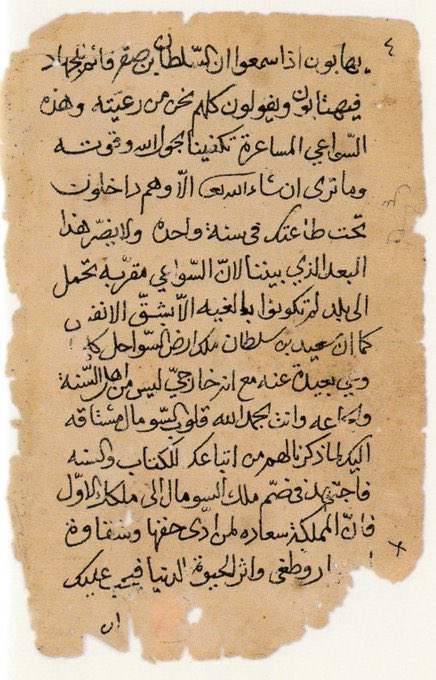 ٤
يهابون اذا سمعوا ان السلطان بن صقر قائم للجهاد
فيهتابون ويقولون كلهم نحن من رعيته وهذه
السواعي المساعرة تكفينا بحول الله وقوته
وما ترى ان شاء الله تعالى الا وهم داخلون
تحت طاعتك في سنة واحده ولا يضر هذا
البعد الذي بيننا لان السواعي مقربه تحمل
الى بلد لم تكونوا بالغيه الا بشق الانفس
كما ان سعيد بن سلطان ملك ارض السواحل كلها
وهي بعيدة عنه مع انه خارجي ليس من اهل السنة
والجماعه وانت بحمد الله قلوب السومال مشتاقه
اليك لما ذكرنا لهم من اتباعك للكتاب والسنه
فاجتهد في ضم ملك السومال الى ملكك الاول
فان المملكة سعاده لمن ادى حقها وشقاوة
وطغى واثر الحيوة الدنيا فيجب عليك
ان